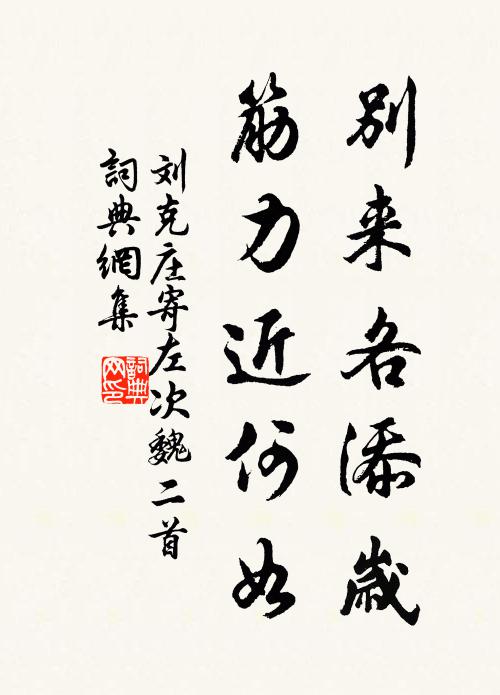 別来各添歳
筋力近何如
刘克庄寄左次魏二首
詞典網集
詞典
网印